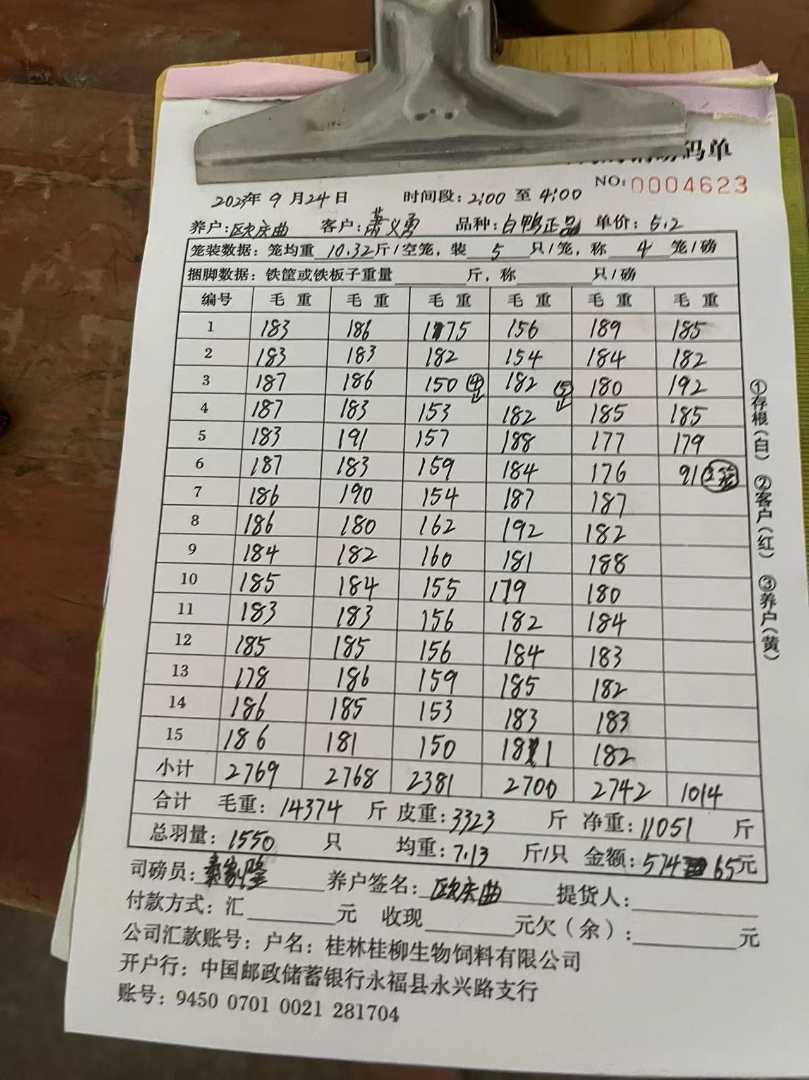 码单
NO:0004623
9月24日 时间段:2:00至4:00
养户:欧庆曲 客户:萧义勇 品种:白鸭正品 单价:5.2
笼装数据:笼均重10.32斤/空笼,装5只/笼,称4笼/磅
捆脚数据:铁筐或铁板子重量 斤,称 只/磅
编号 毛重 毛重 毛重 毛重 毛重 毛重
1 183 186 175 156 189 185
2 183 183 182 154 184 182
3 187 186 150 ④ 182 ⑤ 180 192
4 187 183 153 182 185 185
5 183 191 157 188 177 179
6 187 183 159 184 176 91
7 186 190 154 187 187
8 186 180 162 192 182
9 184 182 160 181 188
10 185 184 155 179 180
11 183 183 156 182 184
12 185 185 156 184 183
13 178 186 159 185 182
14 186 185 153 183 183
15 186 181 150 181 182
小计 2769 2768 2381 2700 2742 1014
合计 毛重:14374斤 皮重:3323斤 净重:11051斤
总羽量:1550只 均重:7.13斤/只 金额:57465元
司磅员: 养户签名:欧庆曲 提货人:
付款方式:汇 元 收现 元欠(余): 元
公司汇款账号:户名:桂林桂柳生物饲料有限公司
开户行:中国邮政储蓄银行永福县永兴路支行
账号:9450 0701 0021 281704
①存根(白) ②客户(红) ③养户(黄)